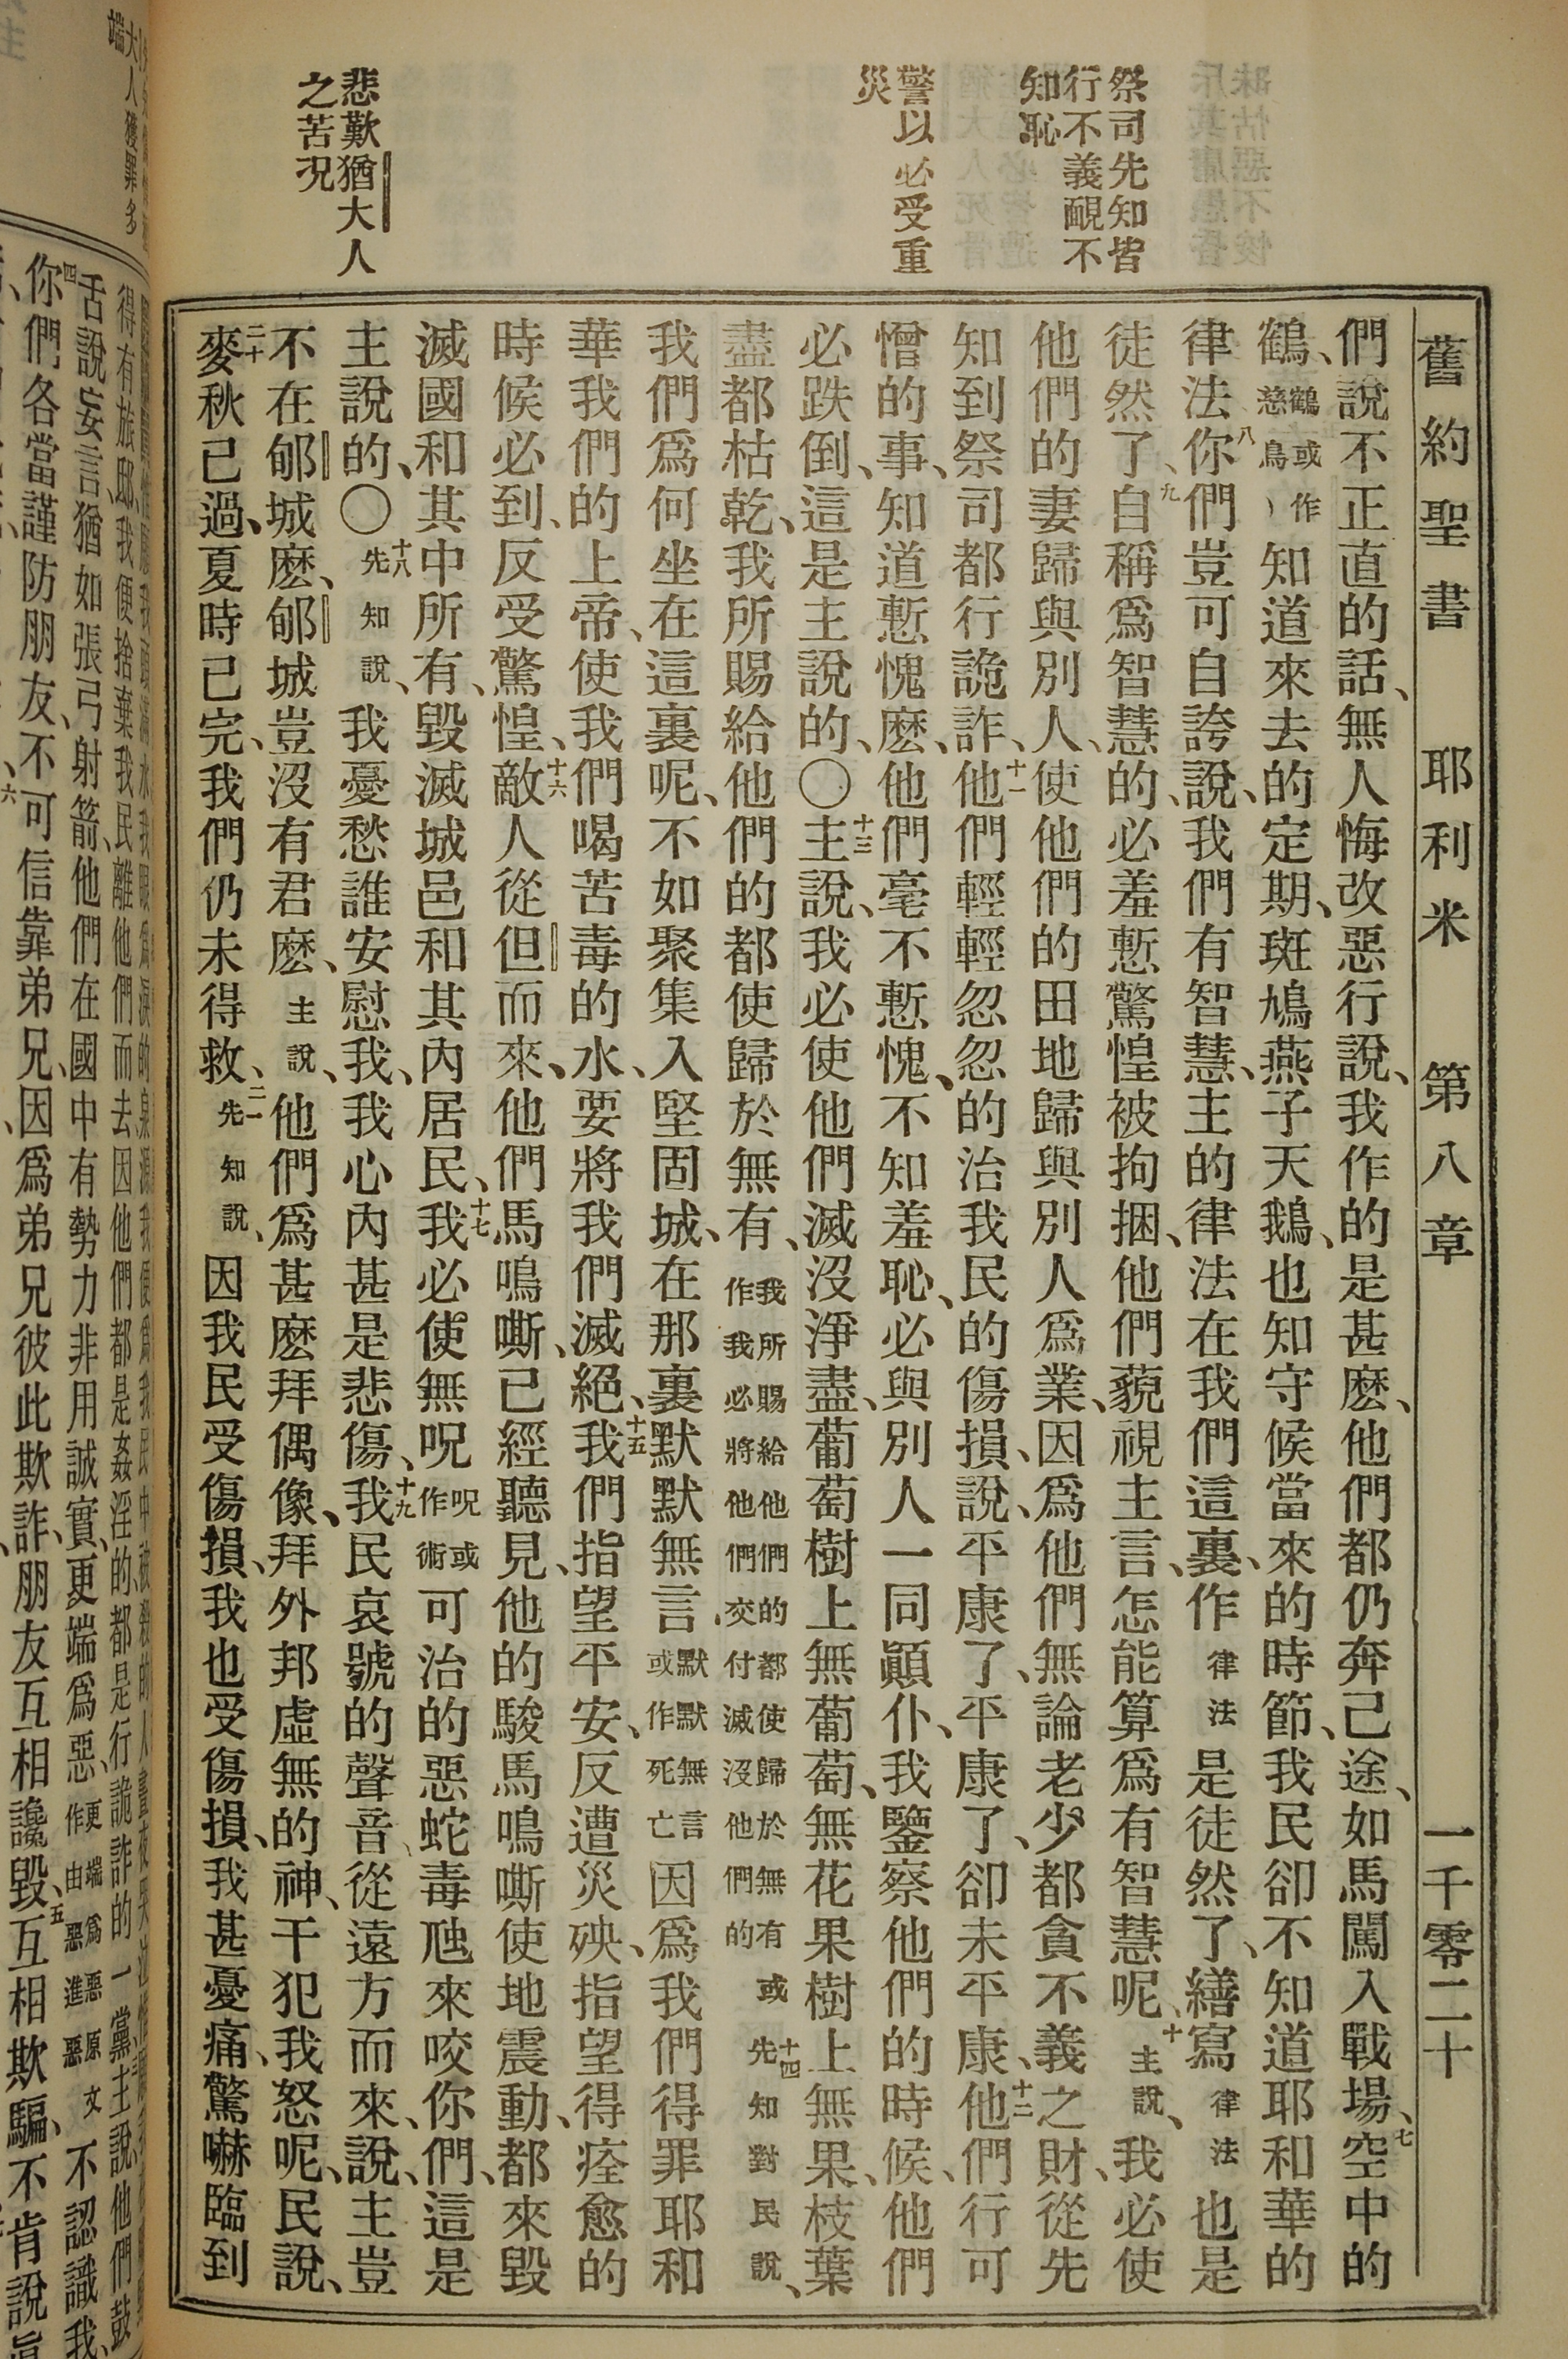 舊約聖書　耶利米　第八章　一千零二十
祭司先知皆
行不義靦不
知恥
警以必受重
災
悲歎猶大人
之苦況
們說不正直的話、無人悔改惡行說、我作的是甚麽、他們都仍奔己途、如馬闖入戰場、七空中的
鶴、鶴或作慈鳥知道來去的定期、斑鳩燕子天鵝、也知守候當來的時節、我民卻不知道耶和華的
律法八你們豈可自誇說、我們有智慧、主的律法在我們這裏、作律法是徒然了、繕寫律法也是
徒然了、九自稱爲智慧的、必羞慙驚惶被拘捆、他們藐視主言、怎能算爲有智慧呢、十主說、我必使
他們的妻歸與別人、使他們的田地歸與別人爲業、因爲他們無論老少都貪不義之財、從先
知到祭司都行詭詐、十一他們輕輕忽忽的治我民的傷損、說、平康了、平康了、卻未平康、十二他們行可
憎的事、知道慙愧麽、他們毫不慙愧、不知羞恥、必與別人一同顚仆、我鑒察他們的時候、他們
必跌倒、這是主說的、〇十三主說、我必使他們滅沒淨盡、葡萄樹上無葡萄、無花果樹上無果、枝葉
盡都枯乾、我所賜給他們的都使歸於無有、我所賜給他們的都使歸於無有或作我必將他們交付滅沒他們的十四先知對民說、
我們爲何坐在這裏呢、不如聚集入堅固城、在那裏默默無言、默默無言或作死亡因爲我們得罪耶和
華我們的上帝、使我們喝苦毒的水、要將我們滅絕、十五我們指望平安、反遭災殃、指望得痊愈的
時候必到、反受驚惶、十六敵人從但而來、他們馬鳴嘶、已經聽見、他的駿馬鳴嘶使地震動、都來毀
滅國和其中所有、毀滅城邑和其內居民、十七我必使無呪呪或作術可治的惡蛇毒虺來咬你們、這是
主說的、〇十八先知說、我憂愁誰安慰我、我心內甚是悲傷、十九我民哀號的聲音、從遠方而來、說、主豈
不在郇城麽、郇城豈沒有君麽、主說、他們爲甚麽拜偶像、拜外邦虛無的神、干犯我怒呢、民說、
二十麥秋已過、夏時已完、我們仍未得救、二一先知說、因我民受傷損、我也受傷損、我甚憂痛、驚嚇臨到
得有旅邸、我便捨棄我民、離他們而去因他們都是姦淫的、都是行詭詐的一黨、主說、他們鼓
舌說妄言猶如張弓射箭、他們在國中有勢力非用誠實、更端爲惡、更端爲惡原文作由惡進惡不認識我、
四你們各當謹防朋友、不可信靠弟兄、因爲弟兄彼此欺詐、朋友互相讒毀、五互相欺騙、不肯說眞